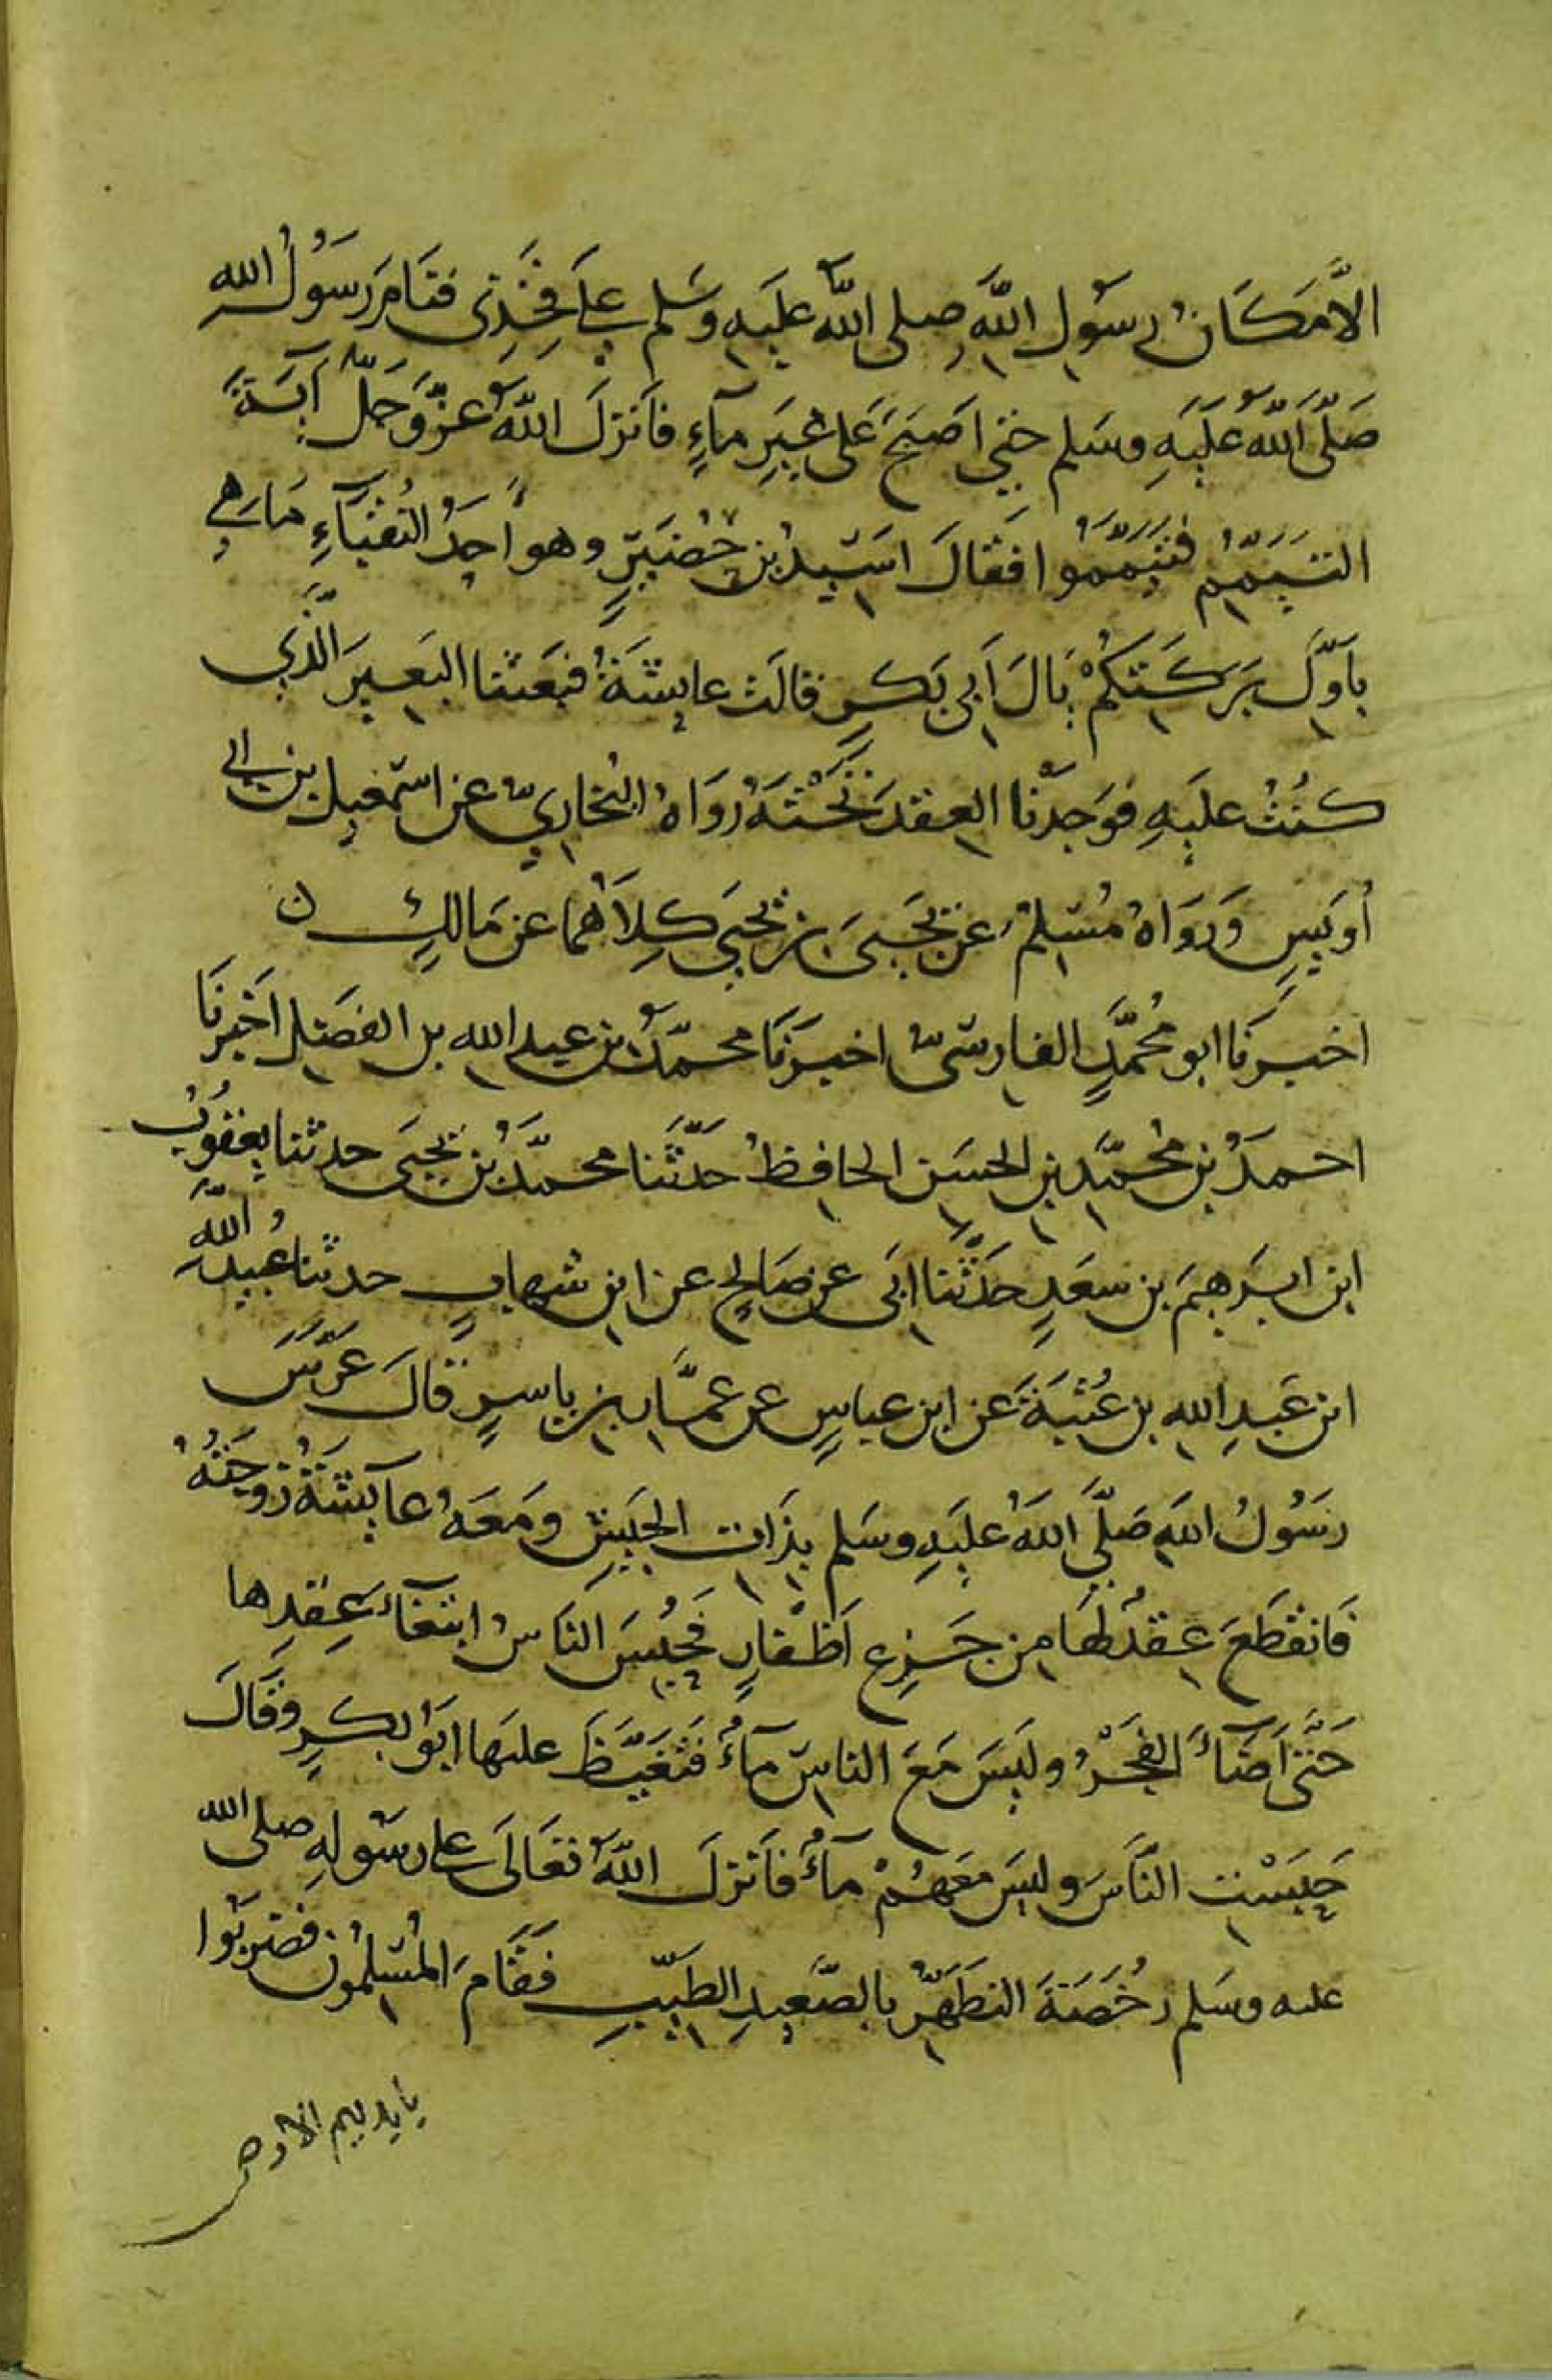 الَّا مَكَانُ رسُولِ اللهِ صلى اللهُ عليه وسَلم على فَخِذِى فنَامَ رَسُولُ الله
صَلَّى اللهُ عَلَيَهِ وسَلم حتى اَصبَحَ عَلى غَيرِ مآءٍ فاَنزلَ اللهُ عَزَّ وَجَلَّ آيَةَ
التيَمّمِ فتَيَمَّمُوا فقَالَ اسَيدُ بن حُضَيرٍ وهو اَحَدُ النُقبَآءِ مَا هى
باَوَّلِ بَرَكَتكُمْ يَالَ اَبى بَكرٍ قالَت عايشَةُ فبَعَثنا البَعيرَ الَّذِى
كنُتُ عليَهِ فوَجدنا العِقدَ تَحْتَهُ رَوَاهُ البُخارِىّ عن اسمعيل بن ابى
اُوَيسٍ وَرَوَاهُ مُسلم عن يَحيىَ بن يحيَى كِلاَهُما عن مَالكٍ ن
اخبرَنَا ابو مُحمَّدٍ الفارسىّ اخبرَنَا محمّدُ بن عبد الله بن الفضَل اَخبَرنَا
احمدُ بن مُحمَّد بن الحسَن الحافِظُ حَدَّثَنا محمَّدُ بن يَحيَى حدثنا يعقوُبُ
ابن ابرَهيمَ بن سعَدٍ حَدَّثنا ابَى عن صَالحٍ عن ابن شهابٍ حدثنا عُبيدُ اللهِ
ابن عَبدِ الله بن عُتبَةَ عن ابن عباسٍ عن عمَّار بن ياسرٍ قالَ عَرَّسَ
رسَوُلُ اللهِ صَلَّى اللهُ عليَهِ وسَلم بذَات الجَيشِ ومَعَهُ عآيشَةُ زَوجَتُهُ
فَانقَطَعَ عِقدٌ لهَا من جَزعِ اَظفَارٍ فحُبسَ النَاسُ ابتغآء عِقدِها
حَتَّى اَضَآءَ الفَجْرُ وليَسَ مَعَ الناسِ مآءٌ فتَغَيّظَ عليَها ابَوُ بكرٍ وقَالَ
حَبَسْت النَّاسَ وليسَ مَعَهُمْ مآءٌ فاَنزلَ اللهُ تعَالَى على رسَولهِ صلى الله
عليه وسَلم رُخصَةَ التطَهّرِ بالصَّعيدِ الطيّبِ فقَامَ المُسلمُونَ فضرَبوُا
بايديهم الارض